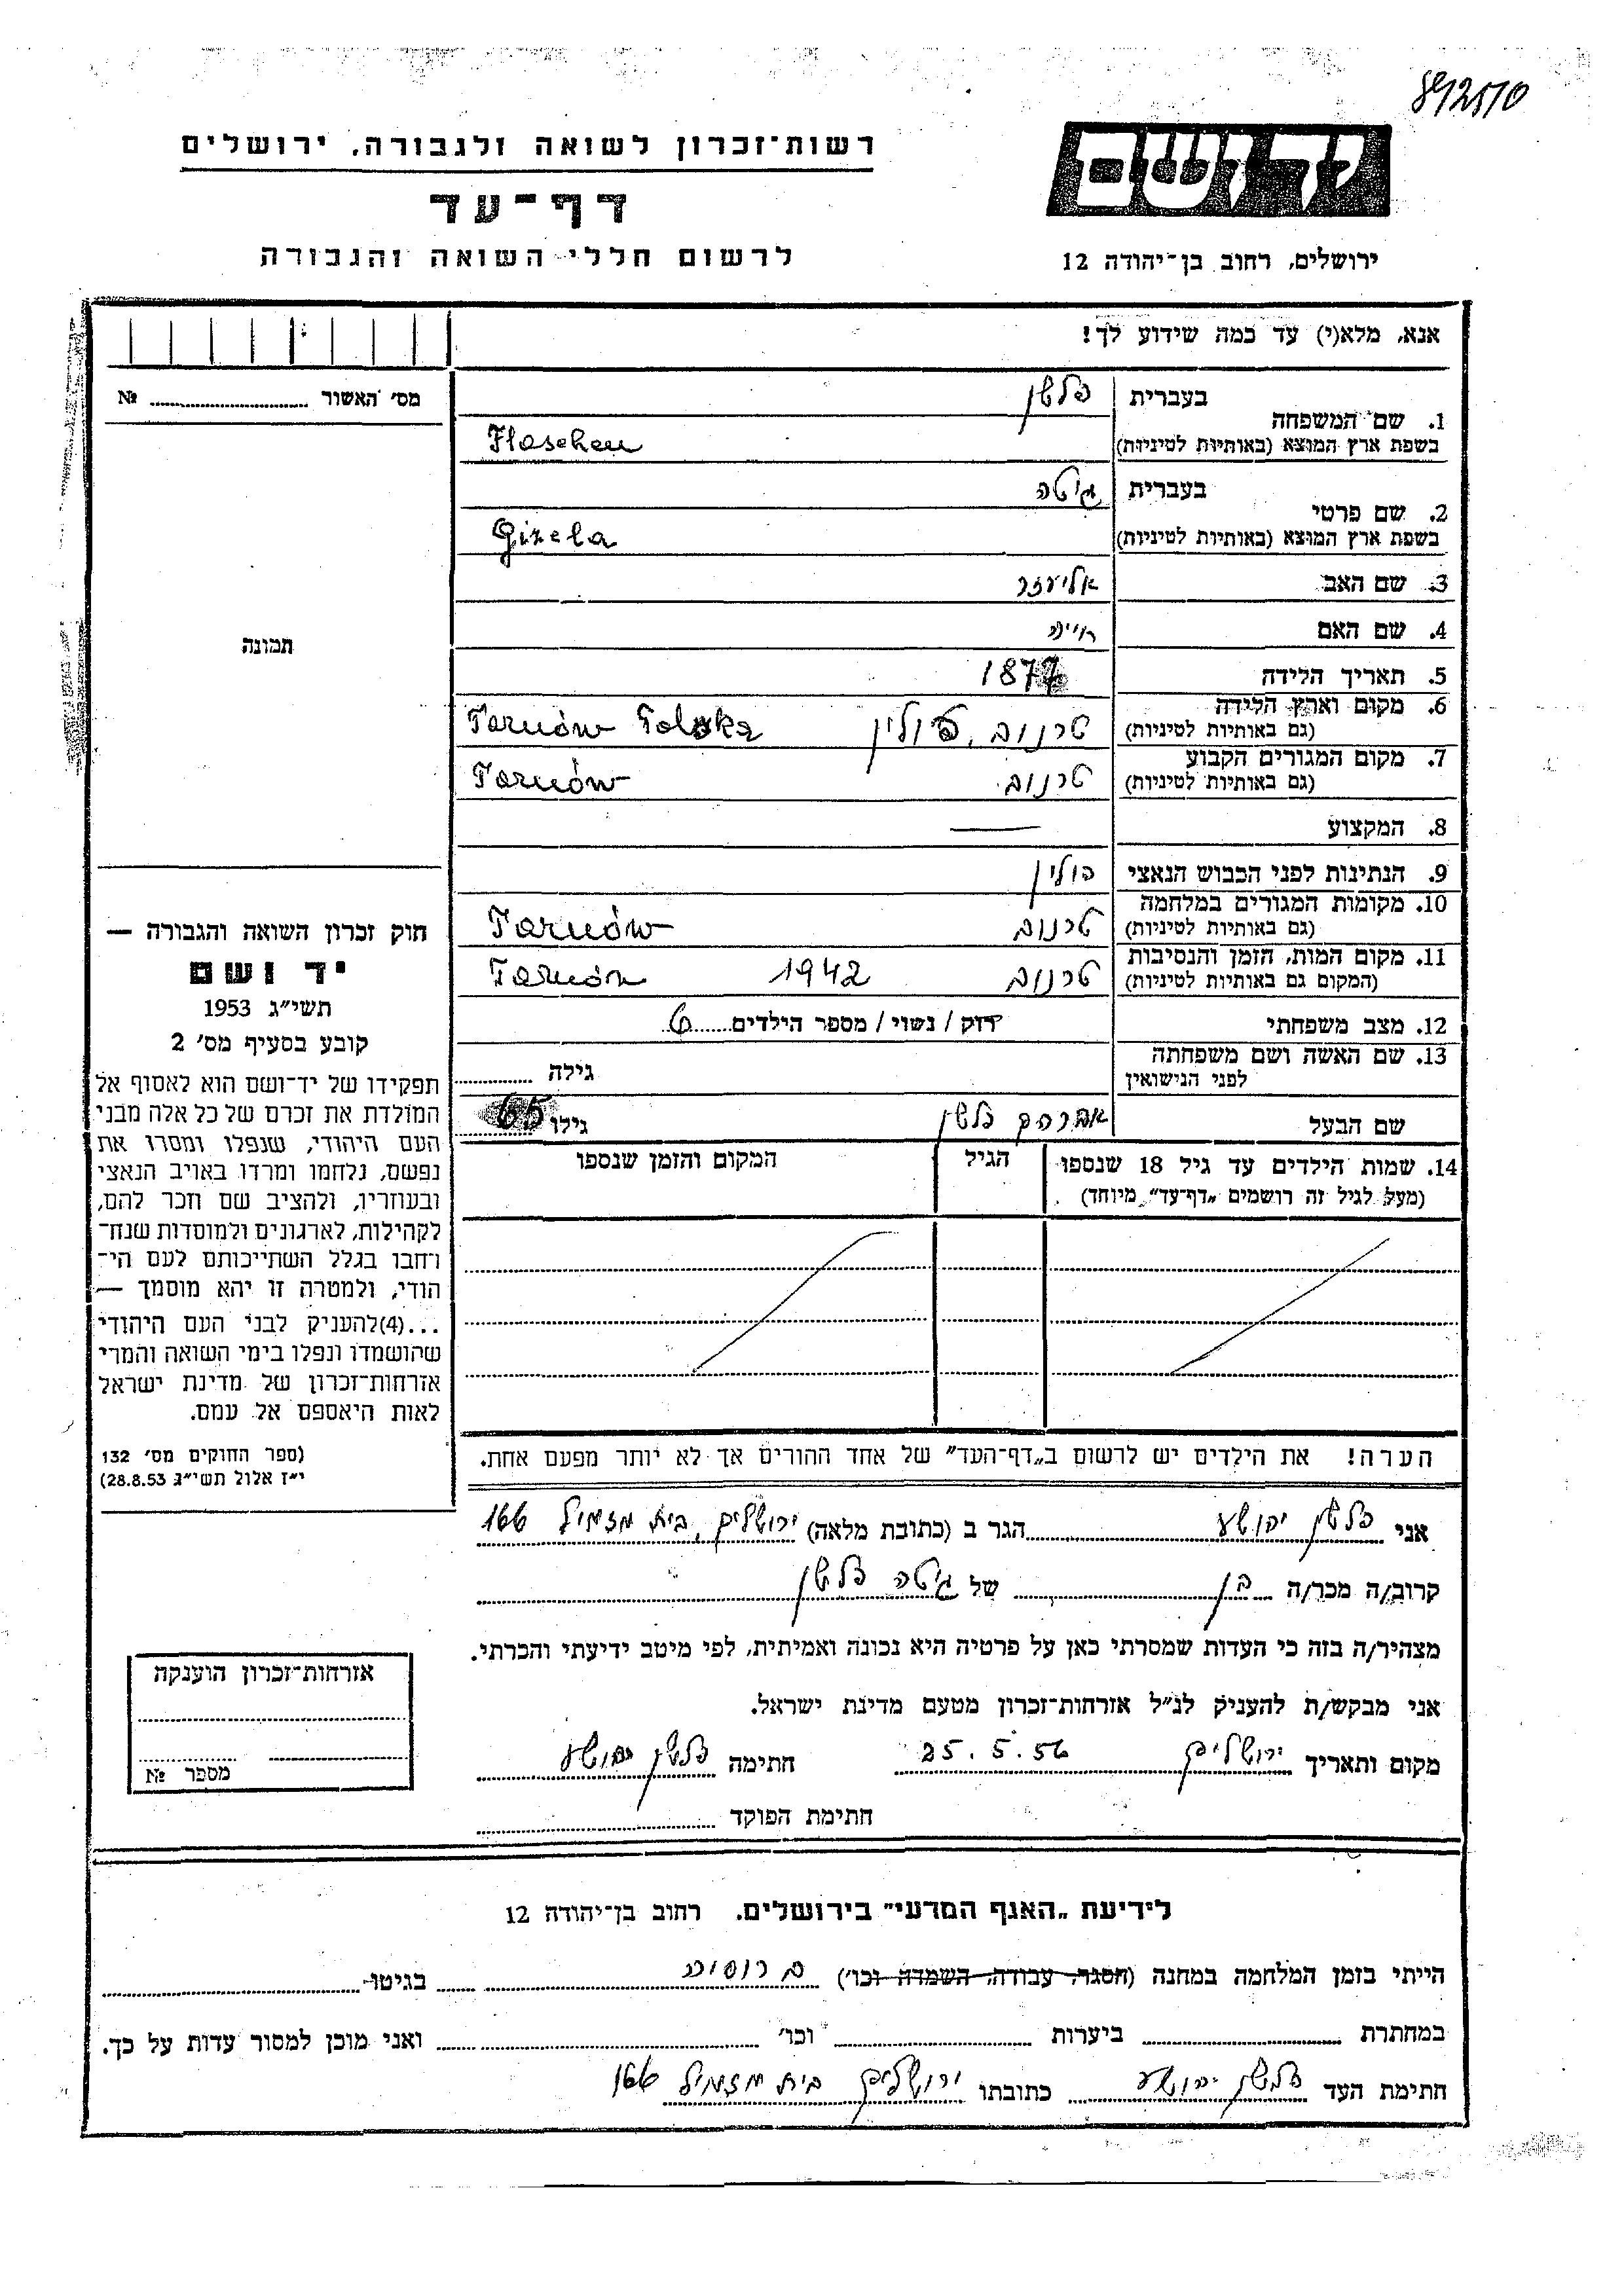 892510
רשות־זכרון לשואה ולגבורה, ירושלים
יד ושם
דף־עד
לרשום חללי השואה והגבורה
ירושלים, רחוב בן־יהודה 12
אנא, מלא(י) עד כמה שידוע לך!
מס׳ האשור № ........
1. שם המשפחה
בעברית פלשן
בשפת ארץ המוצא (באותיות לטיניות) Flaschen
2. שם פרטי
בעברית גיטה
בשפת ארץ המוצא (באותיות לטיניות) Gizela
3. שם האב אליעזר
4. שם האם
תמונה
5. תאריך הלידה 1877
6. מקום וארץ הלידה
(גם באותיות לטיניות) טרנוב, פולין Tarnów Polska
7. מקום המגורים הקבוע
(גם באותיות לטיניות) טרנוב Tarnów
8. המקצוע —
9. הנתינות לפני הכבוש הנאצי פולין
10. מקומות המגורים במלחמה
(גם באותיות לטיניות) טרנוב Tarnów
11. מקום המות, הזמן והנסיבות
(המקום גם באותיות לטיניות) טרנוב 1942 Tarnów
12. מצב משפחתי רוק / נשוי / מספר הילדים 6
13. שם האשה ושם משפחתה
לפני הנישואין גילה ........
שם הבעל אברהם פלשן גילו 65
14. שמות הילדים עד גיל 18 שנספו הגיל המקום והזמן שנספו
(מעל לגיל זה רושמים „דף־עד״ מיוחד)
הערה! את הילדים יש לרשום ב„דף־העד״ של אחד ההורים אך לא יותר מפעם אחת.
חוק זכרון השואה והגבורה —
יד ושם
תשי״ג 1953
קובע בסעיף מס׳ 2
תפקידו של יד־ושם הוא לאסוף אל
המולדת את זכרם של כל אלה מבני
העם היהודי, שנפלו ומסרו את
נפשם, נלחמו ומרדו באויב הנאצי
ובעוזריו, ולהציב שם וזכר להם,
לקהילות, לארגונים ולמוסדות שנח־
רחבו בגלל השתייכותם לעם הי־
הודי, ולמטרה זו יהא מוסמך —
...(4)להעניק לבני העם היהודי
שהושמדו ונפלו בימי השואה והמרי
אזרחות־זכרון של מדינת ישראל
לאות היאספם אל עמם.
(ספר החוקים מס׳ 132
י״ז אלול תשי״ג 28.8.53)
אני פלשן יהושע הגר ב (כתובת מלאה) ירושלים, בית מזמיל 166
קרוב/ה מכר/ה בן של גיטה פלשן
מצהיר/ה בזה כי העדות שמסרתי כאן על פרטיה היא נכונה ואמיתית, לפי מיטב ידיעתי והכרתי.
אני מבקש/ת להעניק לנ״ל אזרחות־זכרון מטעם מדינת ישראל.
מקום ותאריך ירושלים 25.5.56 חתימה פלשן יהושע
חתימת הפוקד ........
אזרחות־זכרון הוענקה
מספר №
לידיעת „האגף המדעי״ בירושלים. רחוב בן־יהודה 12
הייתי בזמן המלחמה במחנה (הסגר, עבודה, השמדה וכו׳) ברוסיה בגיטו ........
במחתרת ........ ביערות ........ וכו׳ ........ ואני מוכן למסור עדות על כך.
חתימת העד פלשן יהושע כתובתו ירושלים בית מזמיל 166